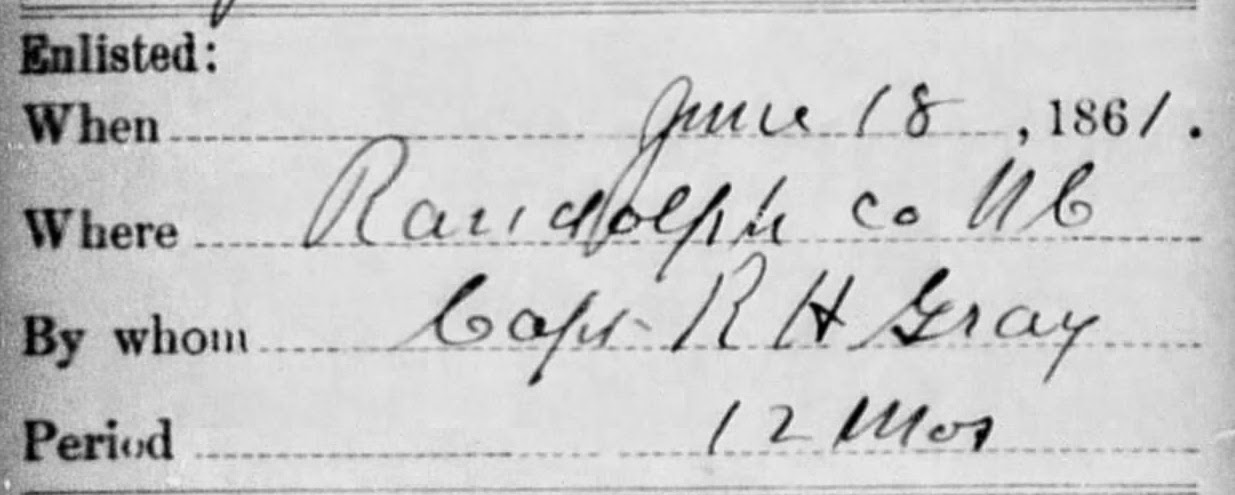 Enlisted:
When June 18, 1861.
Where Randolph co NC
By whom Capt R H Gray
Period 12 Mos